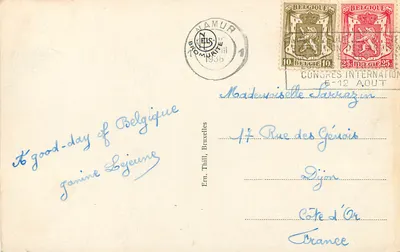 NAMUR
1
1936
BELGIQUE
BELGIQUE
10 BELGIË 10
25 BELGIË 25
CONGRES INTERNATION
6-12 AOUT
Mademoiselle Sarrazin
17 Rue des Génois
Dijon
Côte d'Or
France
A good-day of Belgique
Janine Lejeune
Ern. Thill, Bruxelles